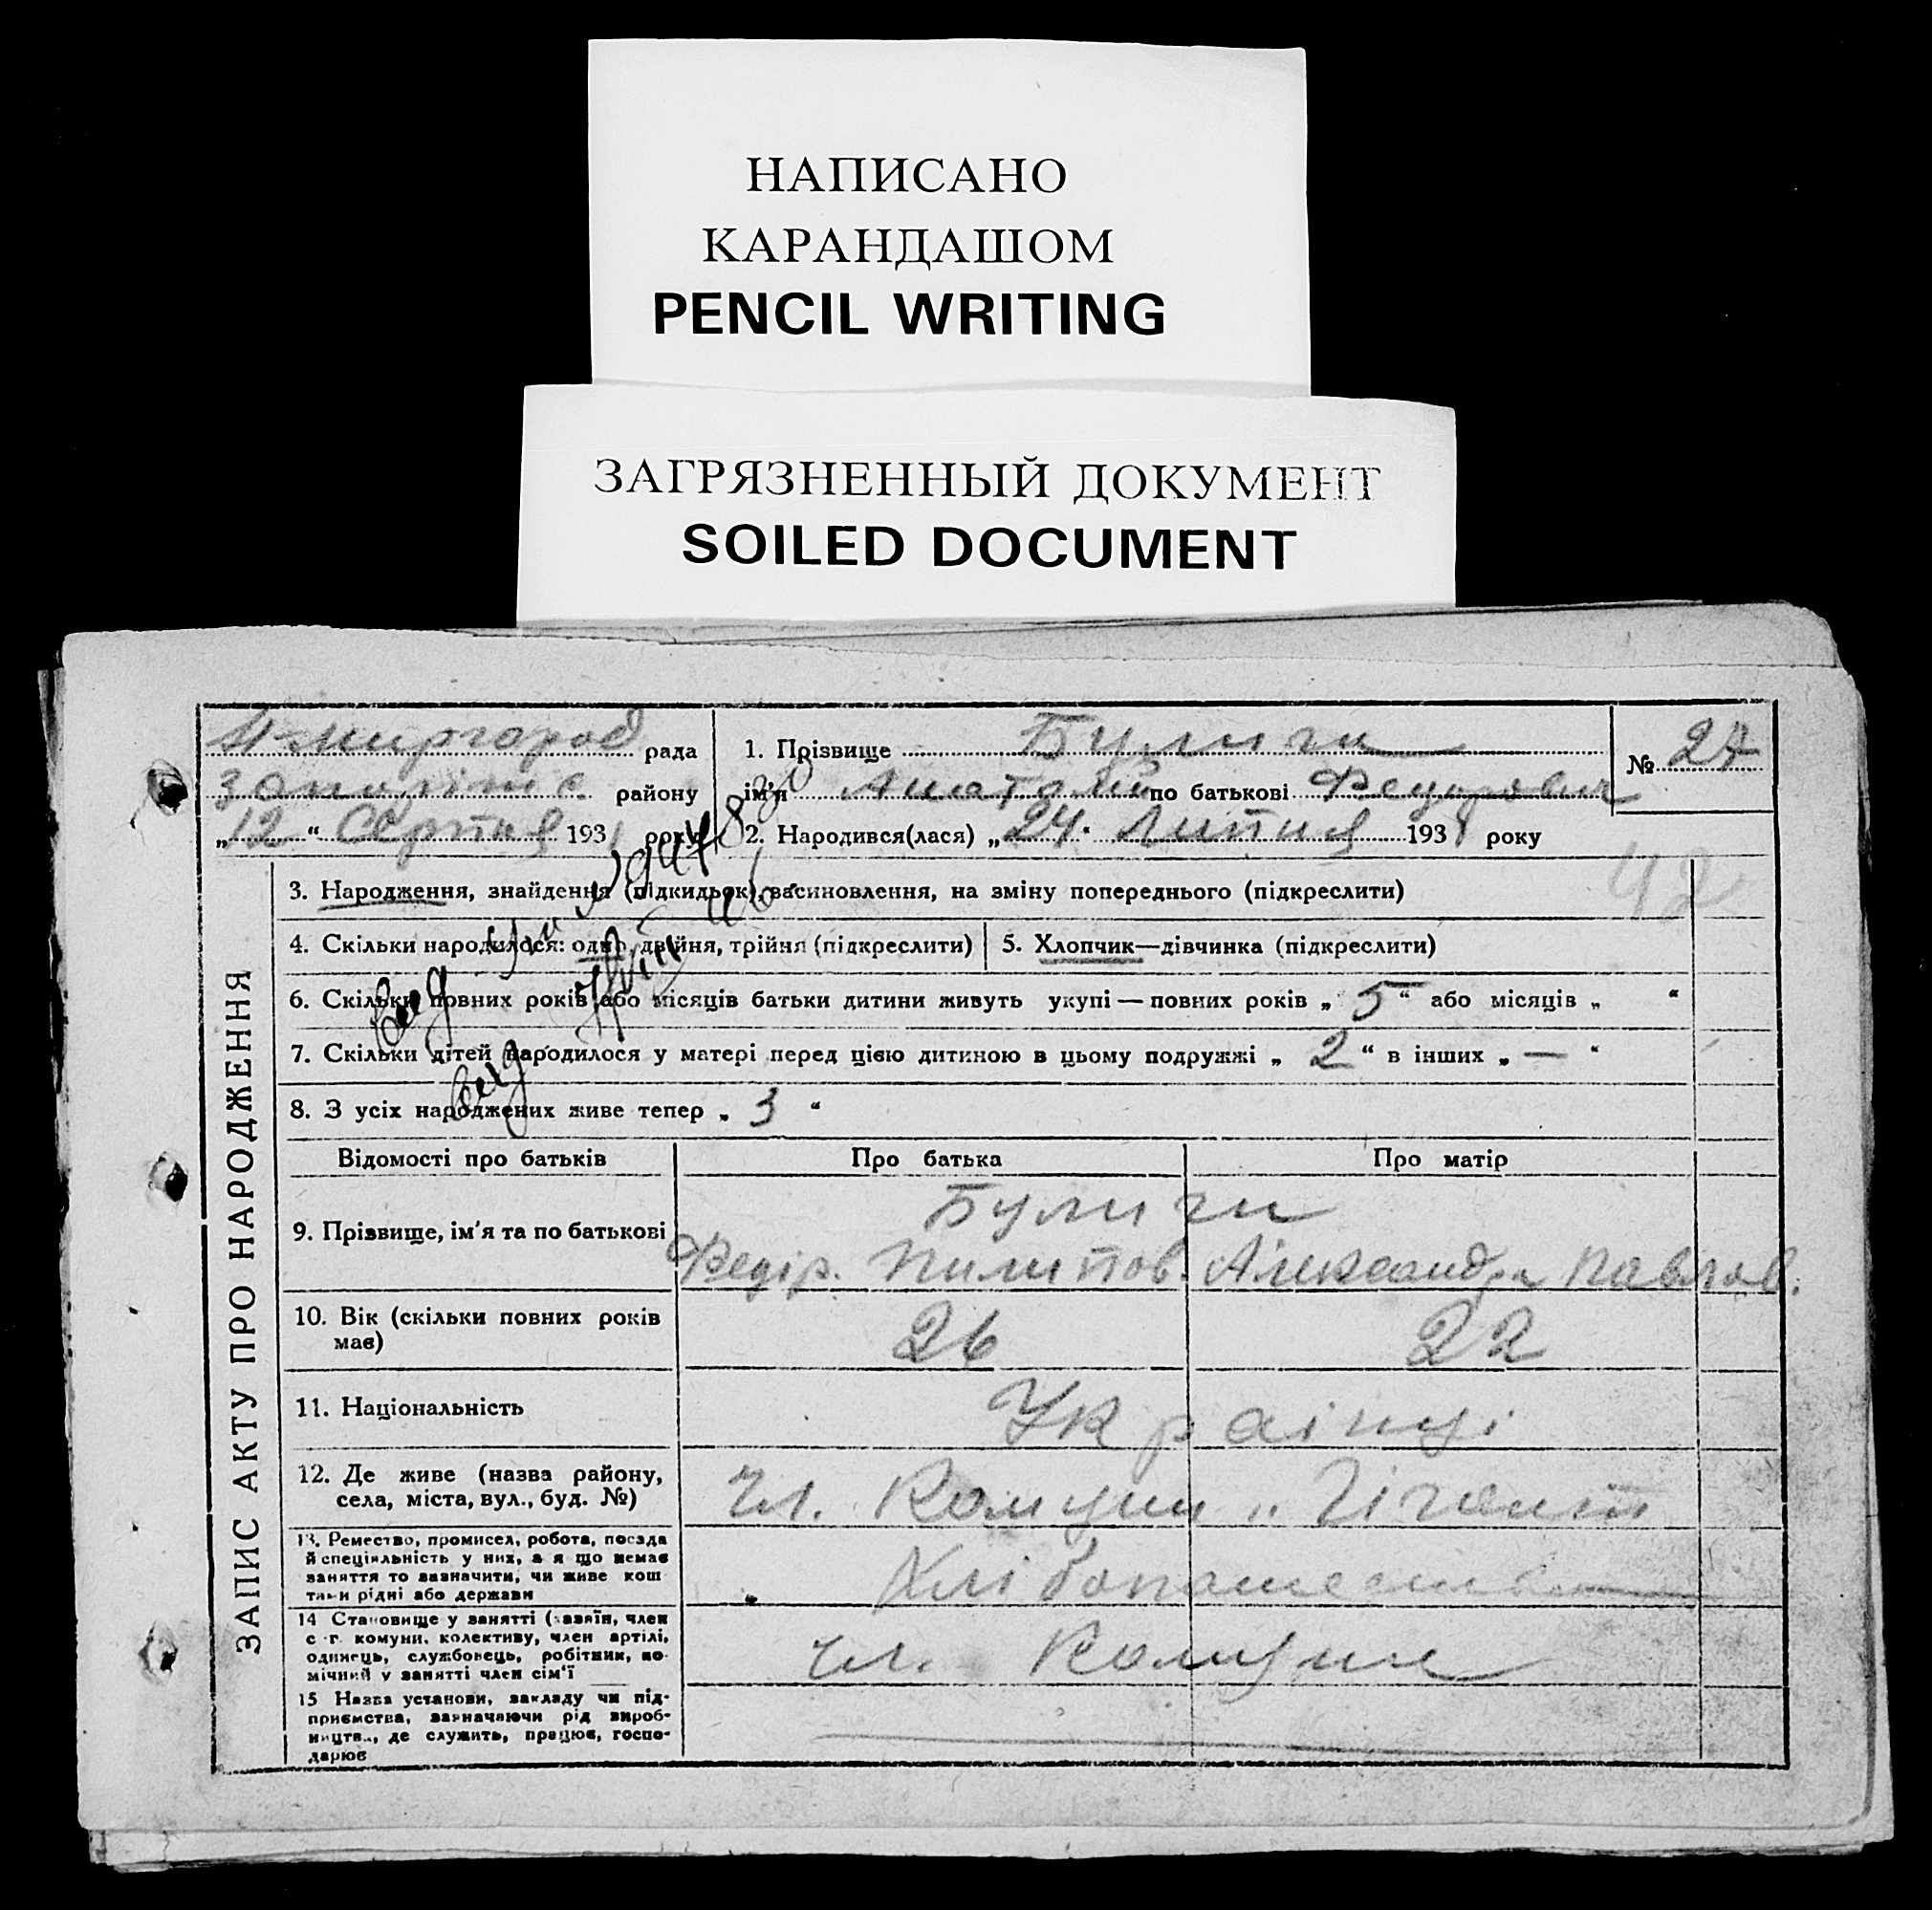 НАПИСАНО
КАРАНДАШОМ
PENCIL WRITING
ЗАГРЯЗНЕННЫЙ ДОКУМЕНТ
SOILED DOCUMENT
Н-Миргород рада
району
„12“ Серпня 1931 року
1. Прізвище Булига
ім'я Анатолій по батькові Федорович
2. Народився(лася) „24“ Липня 1931 року
№ 27
42
ЗАПИС АКТУ ПРО НАРОДЖЕННЯ
3. Народження, знайдення (підкидьок), засиновлення, на зміну попереднього (підкреслити)
4. Скільки народилося: одно, двійня, трійня (підкреслити)
5. Хлопчик—дівчинка (підкреслити)
6. Скільки повних років або місяців батьки дитини живуть укупі — повних років „5“ або місяців „ “
7. Скільки дітей народилося у матері перед цією дитиною в цьому подружжі „2“ в інших „—“
8. З усіх народжених живе тепер „3“
Відомості про батьків Про батька Про матір
9. Прізвище, ім'я та по батькові
Булиги
Федір. Пилипов. Александра Павлов.
10. Вік (скільки повних років
має)
26 22
11. Національність
Українці
12. Де живе (назва району,
села, міста, вул., буд. №)
чл. Комуни „Гігант
13. Ремество, промисел, робота, посада
й спеціяльність у них, а я що немає
заняття то зазначити, чи живе кош
тами рідні або держави
14 Становище у занятті (хазяїн, член
с.-г. комуни, колективу, член артілі,
одинець, службовець, робітник, по-
мічний у занятті член сім'ї
чл. Комуни
15 Назва установи, закладу чи під-
приємства, зазначаючи рід вироб-
ництва, де служить, працює, госпо-
дарює